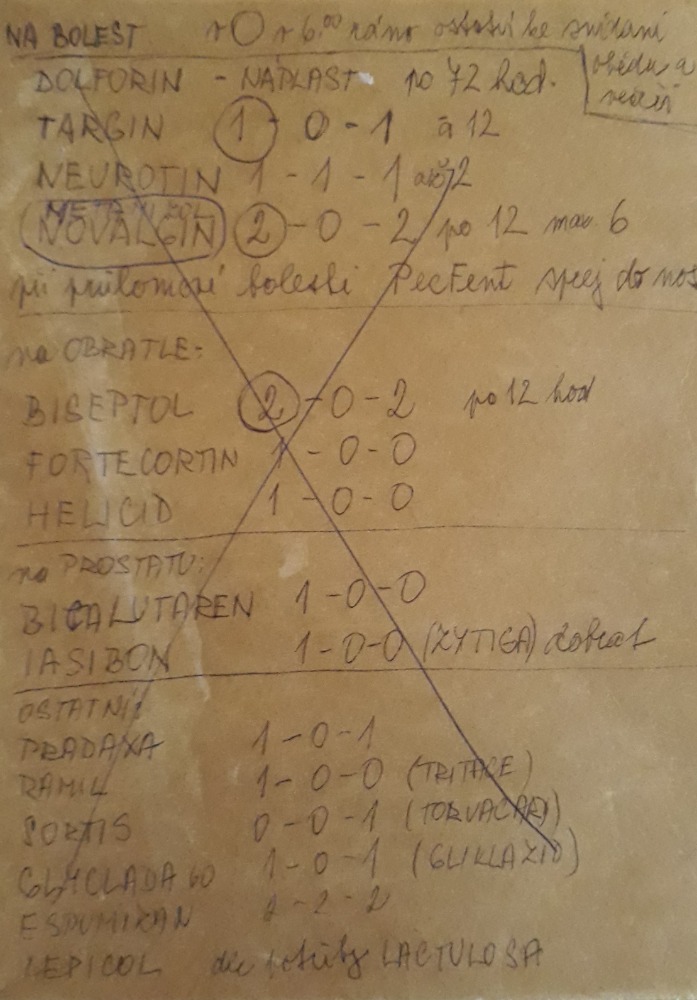 NA BOLEST v O v 6.00 ráno ostatní ke snídani
obědu a
večeři
DOLFORIN - NÁPLAST po 72 hod.
TARGIN 1 - 0 - 1 á 12
NEUROTIN 1 - 1 - 1 až 2
METAMIZOL
NOVALGIN 2 - 0 - 2 po 12 max 6
při průlomové bolesti PecFent sprej do nosu
na OBRATLE:
BISEPTOL 2 - 0 - 2 po 12 hod
FORTECORTIN 1 - 0 - 0
HELICID 1 - 0 - 0
na PROSTATU:
BICALUTAREN 1 - 0 - 0
IASIBON 1 - 0 - 0 (ZYTIGA) dobrat
OSTATNÍ:
PRADAXA 1 - 0 - 1
RAMIL 1 - 0 - 0 (TRITACE)
SORTIS 0 - 0 - 1 (TORVACARD)
GLYCLADA 60 1 - 0 - 1 (GLIKLAZID)
ESPUMIXAN 2 - 2 - 2
LEPICOL dle potřeby LACTULOSA